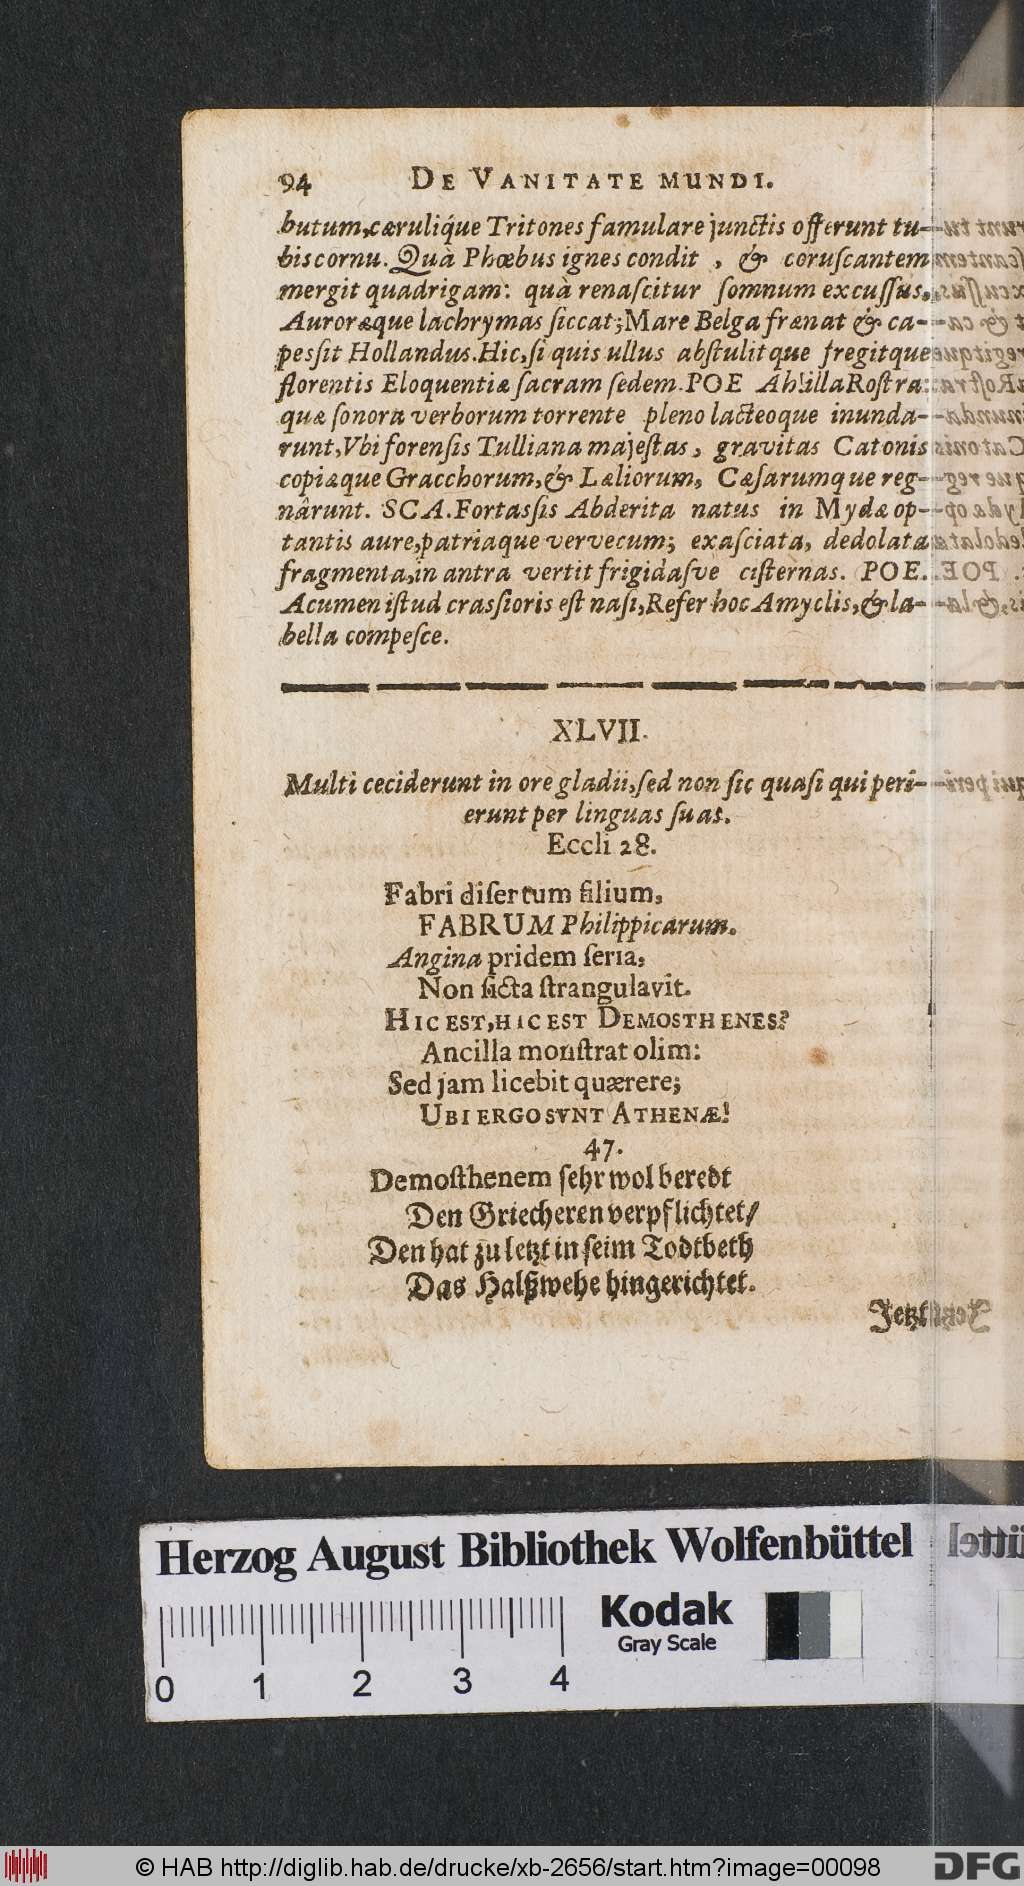 94 DE VANITATE MUNDI.
butum, cæruliq́ue Tritones famulare junctis offerunt tu-
bis cornu. Quà Phœbus ignes condit, & coruſcantem
mergit quadrigam: quà renaſcitur ſomnum excuſſus,
Auroræque lachrymas ſiccat; Mare Belga frænat & ca-
peſſit Hollandus. Hic, ſi quis ullus abſtulitque fregitque
florentis Eloquentiæ ſacram ſedem. POE Ah! illa Roſtra:
quæ ſonora verborum torrente pleno lacteoque inunda-
runt, Vbi forenſis Tulliana majeſtas, gravitas Catonis
copiæque Gracchorum, & Læliorum, Cæſarumque reg-
nârunt. SCA. Fortaſſis Abderita natus in Mydæ op-
tantis aure, patriaque vervecum; exaſciata, dedolata
fragmenta, in antra vertit frigidaſve ciſternas. POE.
Acumen iſtud craſſioris eſt naſi, Refer hoc Amyclis, & la-
bella compeſce.
XLVII.
Multi ceciderunt in ore gladii, ſed non ſic quaſi qui peri-
erunt per linguas ſuas.
Eccli 28.
Fabri diſertum filium,
FABRUM Philippicarum.
Angina pridem ſeria,
Non ficta ſtrangulavit.
HIC EST, HIC EST DEMOSTHENES?
Ancilla monſtrat olim:
Sed jam licebit quærere;
UBI ERGO SVNT ATHENÆ!
47.
Demoſthenem ſehr wol beredt
Den Griecheren verpflichtet/
Den hat zu letzt in ſeim Todtbeth
Das Halßwehe hingerichtet.
Jetzt
Herzog August Bibliothek Wolfenbüttel
Kodak
Gray Scale
0 1 2 3 4
© HAB http://diglib.hab.de/drucke/xb-2656/start.htm?image=00098
DFG